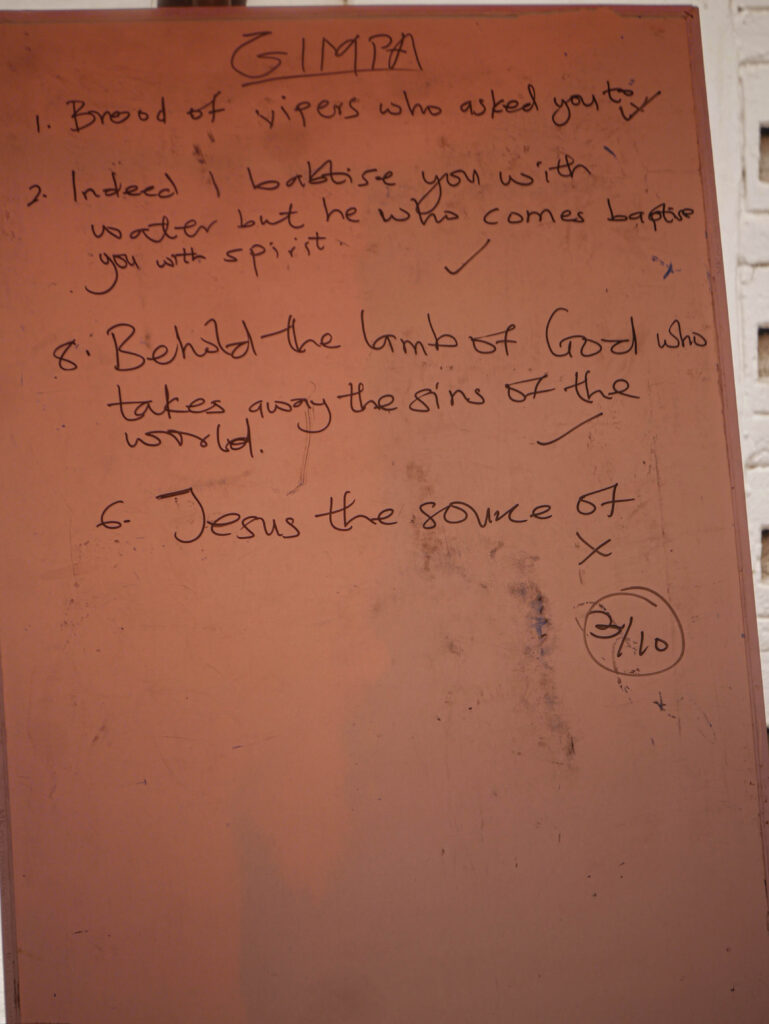 GIMPA
1. Brood of vipers who asked you to ✓
2. Indeed I babtise you with
water but he who comes baptise
you with spirit.
✓
8. Behold the lamb of God who
takes away the sins of the
world.
✓
6. Jesus the source of
X
3/10